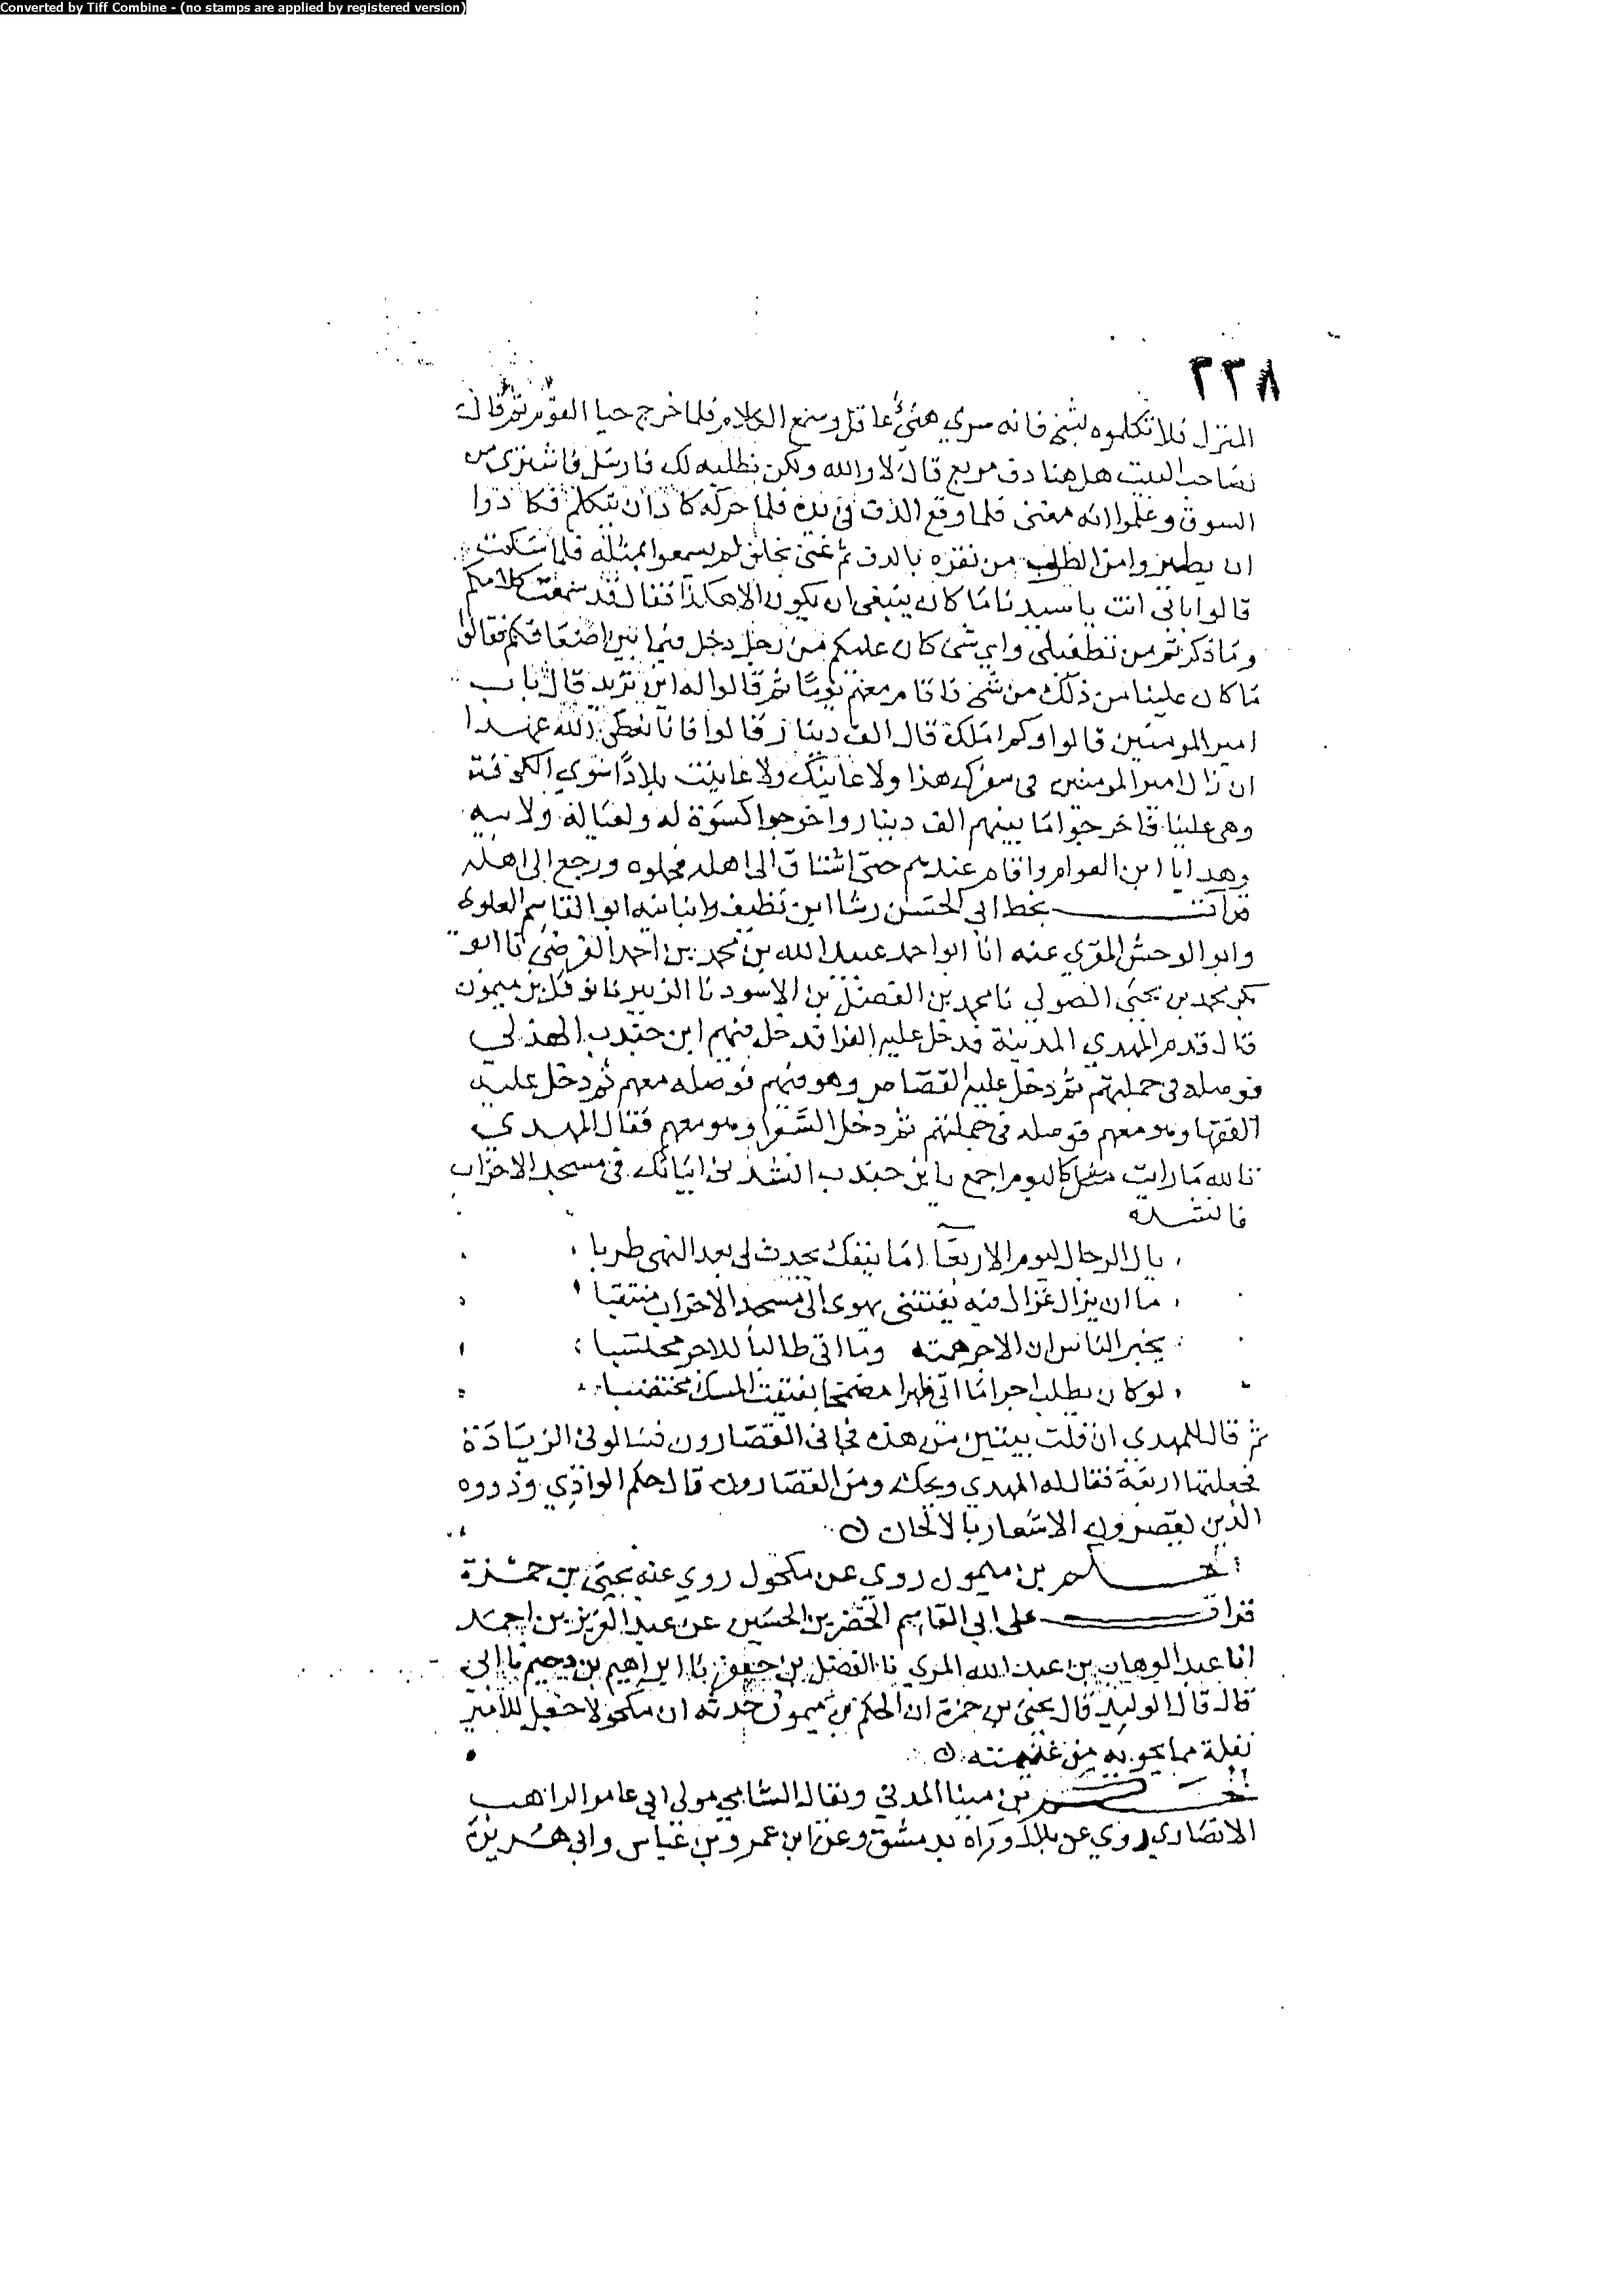 Converted by Tiff Combine - (no stamps are applied by registered version)
٣٣٨
المنزل فلا تكلموه بشي فانه سري هني عاقل وسمع الكلام فلما خرج حيا القوم ثم قال
لصاحب البيت هل هنا دف مربع قال لا والله ولكن نطلبه لك فارسل فاشتري من
السوق وعلموا انه مغني فلما وقع الدف في يده فلما حركه كاد ان يتكلم فكادوا
ان يطيروا من الطرب من نقره بالدف ثم غنى بحلق لم يسمعوا بمثله فلما سكت
قالوا بابي انت يا سيدنا ما كان ينبغي ان يكون الا هكذا فقال قد سمعت كلامكم
وما ذكرتم من تطفيلي واي شي كان عليكم من رجل دخل فيما بين اضعافكم فقالوا
ما كان علينا من ذلك من شي فاقام معهم يوما ثم قالوا له اين تريد قال باب
امير المومنين قالوا وكم املك قال الف دينار قالوا فانا نعطي الله عهدا
ان زال امير المومنين في سفرك هذا ولا عاينك ولا عاينت بلادا سوي الكوفة
وهي علينا فاخرجوا ما بينهم الف دينار واخرجوا كسوة له ولعياله ولابيه
وهدايا ابن العوام واقام عندهم حتى اشتاق الى اهله فحملوه ورجع الى اهله
قرات بخط ابي الحسن رشا ابن نظيف وانبانيه ابو القاسم العلوي
وابو الوحش المقري عنه انا ابو احمد عبيد الله بن محمد بن احمد الفرضي نا ابو
بكر محمد بن يحيى الصولي نا محمد بن الفضل بن الاسود نا الزبير نا نوفل بن ميمون
قال قدم المهدي المدينة فدخل عليه القرا فدخل منهم ابن جندب الهذلي
فوصله في جملتهم ثم دخل عليه القصاص وهو منهم فوصله معهم ثم دخل عليه
الفقها وهو معهم فوصله في جملتهم ثم دخل الشعرا وهو معهم فقال المهدي
تا لله ما رايت مثل كاليوم اجمع يا بن جندب انشدني ابياتك في مسجد الاحزاب
فانشده
يال الرجال ليوم الاربعا اما ينفك يحدث لي بعد النهى طربا
ما ان يزال غزال فيه يفتنني يهوى الى مسجد الاحزاب منتقبا
يخبر الناس ان الاجر همته وما اتى طالبا للاجر محتسبا
لو كان يطلب اجرا ما اتى ظهرا مضمخا بفتيت المسك مختضبا
ثم قال للمهدي ان قلت بيتين من هذه فجاني القصارون فسالوني الزيادة
فجعلتها اربعة فقال له المهدي ويحك ومن القصارون قال حكم الوادي وذووه
الذين يقصرون الاشعار بالالحان
حكم بن ميمون روي عن مكحول روي عنه يحيى بن حمزة
قرات على ابي القاسم الخضر بن الحسين عن عبد العزيز بن احمد
انا عبد الوهاب بن عبد الله المري نا الفضل بن جعفر نا ابراهيم بن دحيم نا ابي
قال قال الوليد قال يحيى بن حمزة ان الحكم بن ميمون حدثه ان مكحولا جعل للامير
نفله مما يحويه من غنيمته
حكم بن مينا المدني ويقال الشامي مولى ابي عامر الراهب
الانصاري روي عن بلال وراه بدمشق وعن ابن عمر وبن عباس وابي هريرة